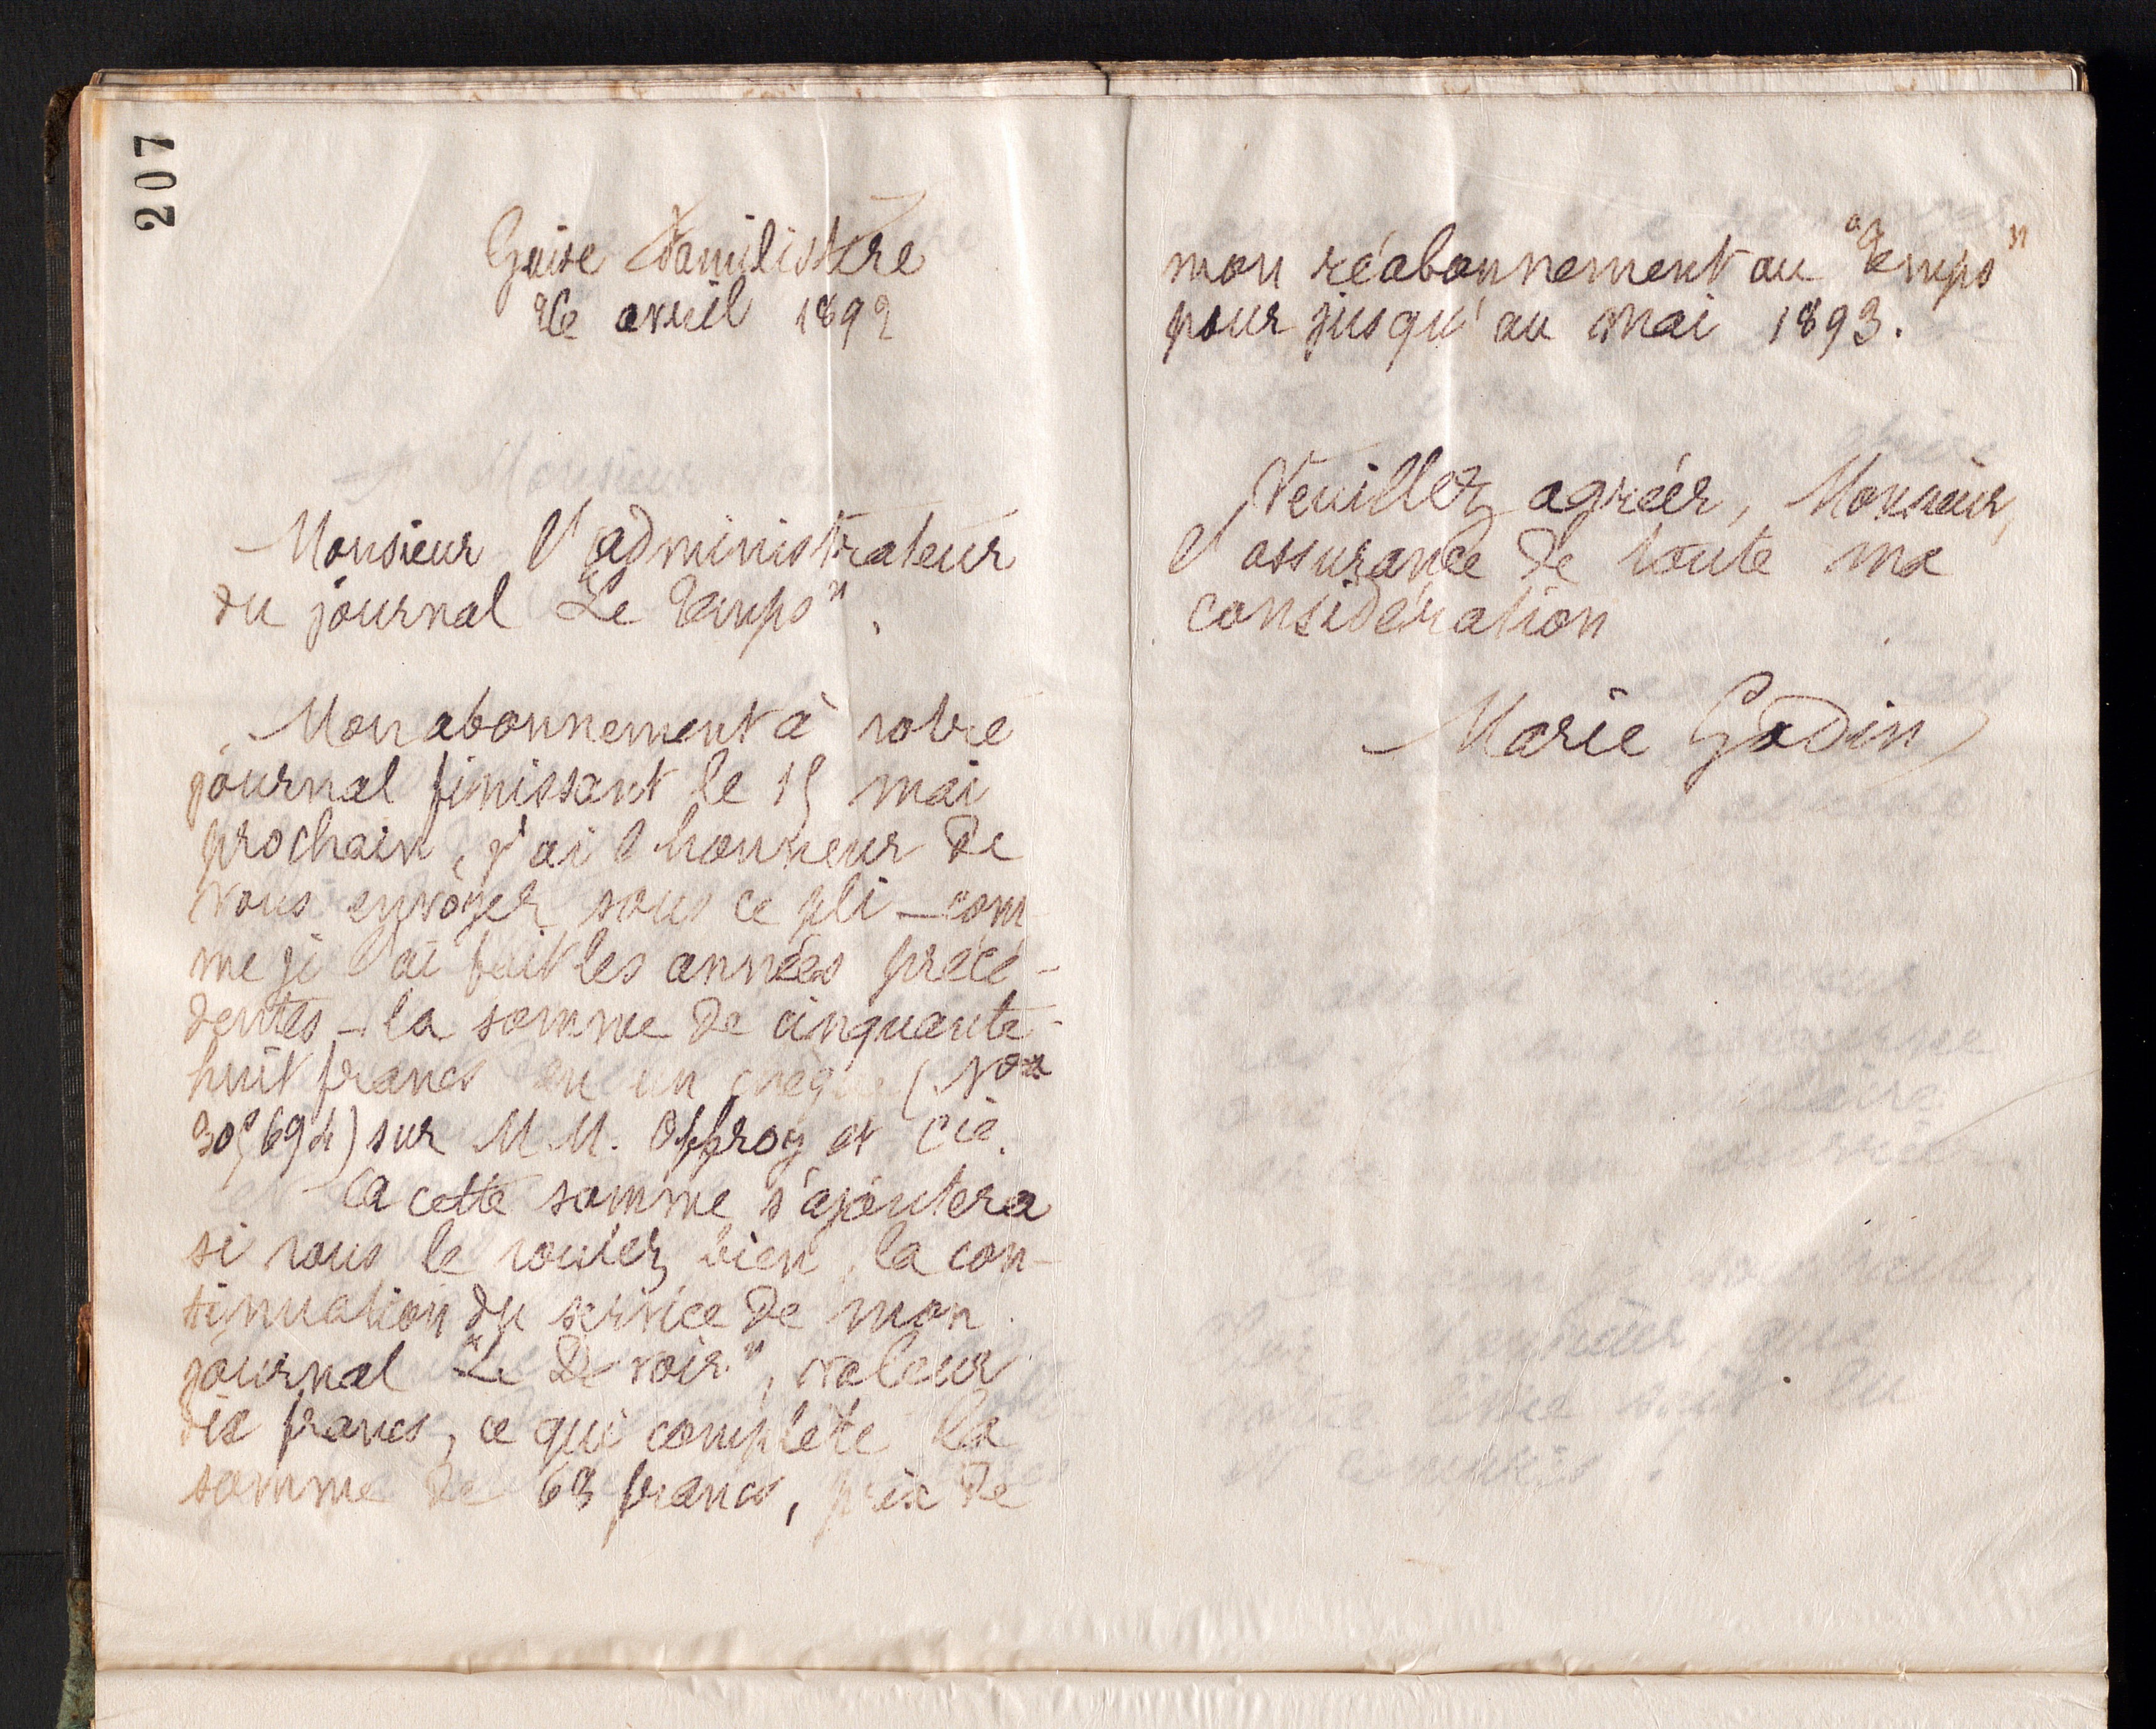 207
Guise Familistère
26 avril 1892
Monsieur l'administrateur
du journal "Le Temps".
Mon abonnement à votre
journal finissant le 15 mai
prochain, j'ai l'honneur de
vous envoyer sous ce pli – com
me je l'ai fait les années précé-
dentes – la somme de cinquante-
huit francs en un chèque (No
305694) sur M.M. Offroy et Cie.
A cette somme s'ajoutera
si vous le voulez bien, la con-
tinuation du service de mon
journal "Le Devoir", valeur
dix francs, ce qui complète la
somme de 68 francs, prix de
mon réabonnement au "Temps"
pour jusqu'au mai 1893.
Veuillez agréer, Monsieur,
l'assurance de toute ma
considération
Marie Godin